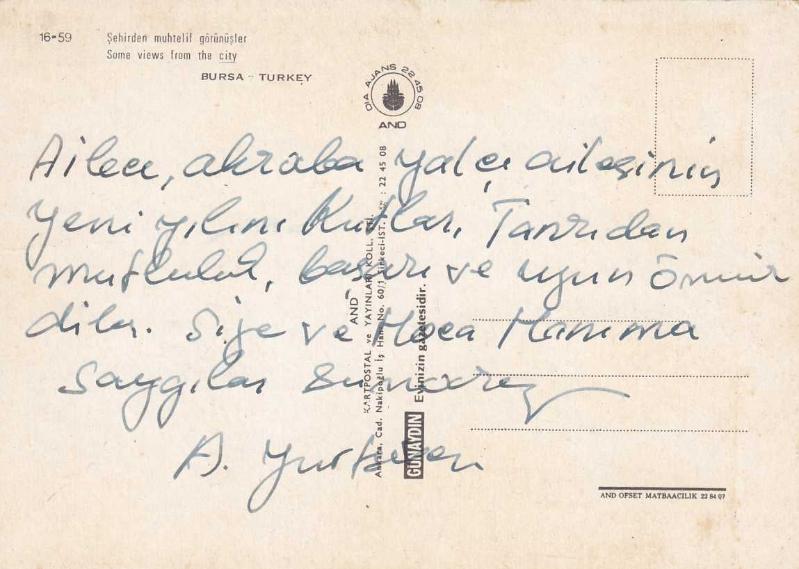 16-59
Şehirden muhtelif görünüşler
Some views from the city
BURSA - TURKEY
DİA AJANS 22 45 08
AND
Ailece, akraba Yalçı ailesinin
yeni yılını kutlar, Tanrıdan
mutluluk, başarı ve uzun ömür
diler. Size ve Hoca Hanıma
saygılar sunarız
A.
AND
KARTPOSTAL ve YAYINLARI KOLL. ŞTİ.
Ankara, Cad. Nakipoğlu İş Hanı No. 60/1 Sirkeci-İST. : 22 45 08
GÜNAYDIN Evinizin gazetesidir.
AND OFSET MATBAACILIK 22 84 07